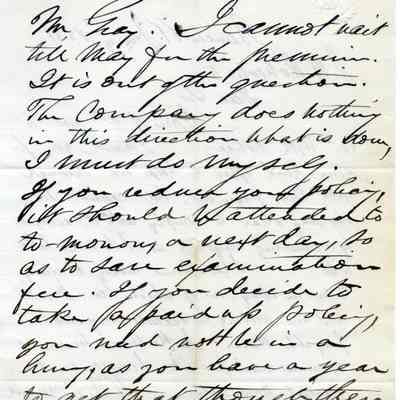 Mr Gray: I cannot wait
till May for the premium.
It is out of the question.
The Company does nothing
in this direction what is done,
I must do myself.
If you reduce your policy,
it should be attended to
to-morrow, or next day, so
as to save examination
fee. If you decide to
take a paid up policy,
you need not be in a
hurry, as you have a year
to get that though there